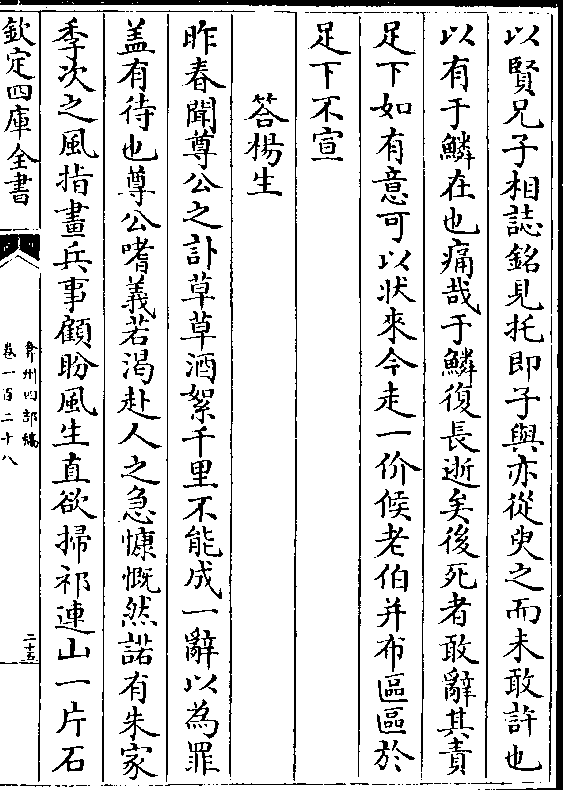 以賢兄子相誌銘見托即子與亦從臾之而未敢許也
以有于鱗在也痛哉于鱗復長逝矣後死者敢辭其責
足下如有意可以狀來今走一价候老伯并布區區於
足下不宣
答楊生
昨春聞尊公之訃草草酒絮千里不能成一辭以為罪
盖有待也尊公嗜義若渴赴人之急慷慨然諾有朱家
季次之風指畫兵事顧盼風生直欲掃祁連山一片石
欽定四庫全書
弇州四部稿
卷一百二十八
二十五